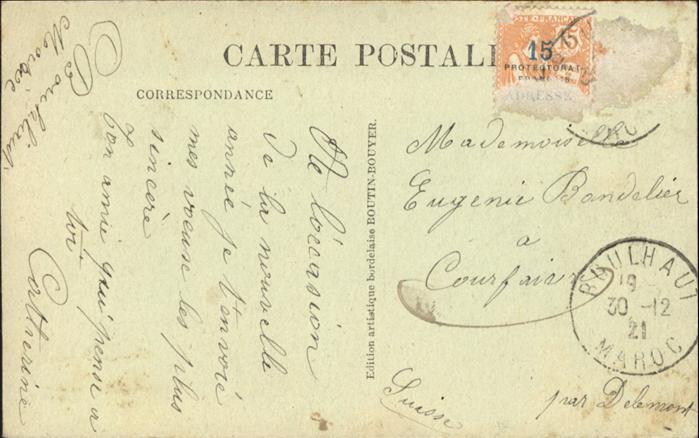 CARTE POSTALE
CORRESPONDANCE
ADRESSE
POSTE FRANÇAISE
15
15
PROTECTORAT
FRANÇAIS
Boulhaut
Maroc
A l'occasion
de la nouvelle
année je t'envoie
mes voeuse les plus
sincère
ton amie qui pense a
toi
Catherine
Edition artistique bordelaise BOUTIN-BOUYER.
Mademoiselle
Eugenie Bandelier
a
Courfaivre
Suisse
par Delemont
BOULHAUT
19
30-12
21
MAROC